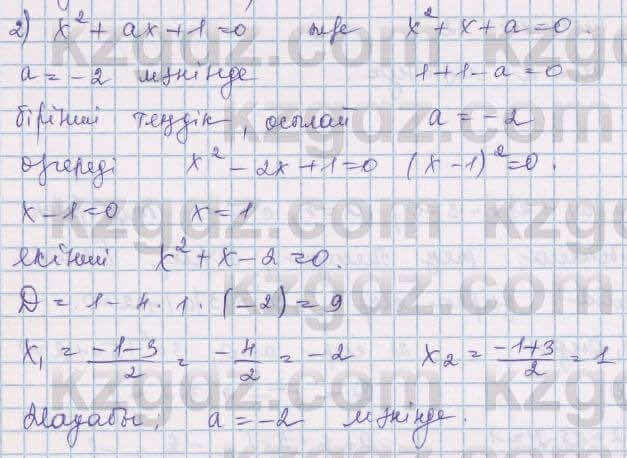 2) x² + ax + 1 = 0 және x² + x + a = 0.
a = -2 мәнінде 1 + 1 - a = 0
бірінші теңдік, осылай a = -2
өзгереді x² - 2x + 1 = 0 (x - 1)² = 0.
x - 1 = 0 x = 1
екінші x² + x - 2 = 0.
D = 1 - 4 · 1 · (-2) = 9
x₁ = \frac{-1-3}{2} = \frac{-4}{2} = -2 x₂ = \frac{-1+3}{2} = 1
Жауабы: a = -2 мәнінде.
kzgdz.com